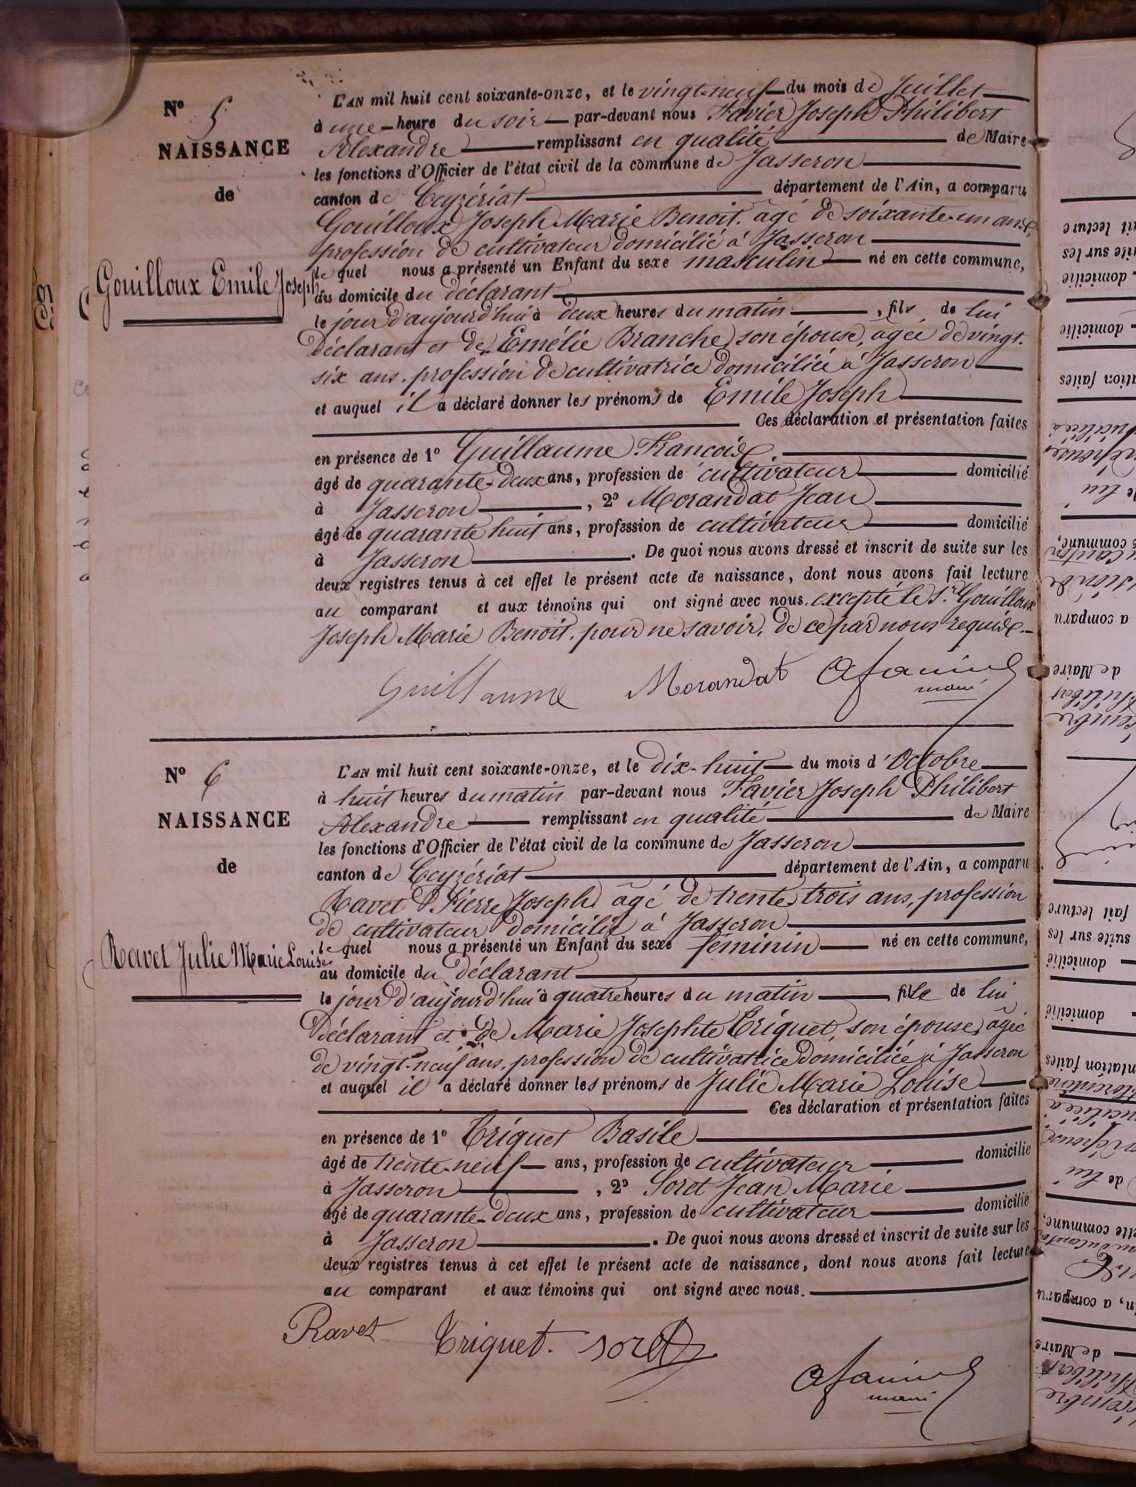 N° 5
NAISSANCE
de
Gouilloux Emile Joseph
L'AN mil huit cent soixante-onze, et le vingt-neuf du mois de Juillet
à une heure du soir par-devant nous Favier Joseph Philibert
Alexandre remplissant en qualité de Maire
les fonctions d'Officier de l'état civil de la commune de Jasseron
canton de Ceyzériat département de l'Ain, a comparu
Gouilloux Joseph Marie Benoit, âgé de soixante-un ans,
profession de cultivateur domicilié à Jasseron
le quel nous a présenté un Enfant du sexe masculin né en cette commune,
au domicile du déclarant
le jour d'aujourd'hui à deux heures du matin, fils de lui
déclarant et de Emélie Branche, son épouse, agée de vingt-
six ans, profession de cultivatrice domiciliée à Jasseron
et auquel il a déclaré donner les prénoms de Emile Joseph
Ces déclaration et présentation faites
en présence de 1° Guillaume François
âgé de quarante-deux ans, profession de cultivateur domicilié
à Jasseron, 2° Morandat Jean
âgé de quarante huit ans, profession de cultivateur domicilié
à Jasseron. De quoi nous avons dressé et inscrit de suite sur les
deux registres tenus à cet effet le présent acte de naissance, dont nous avons fait lecture
au comparant et aux témoins qui ont signé avec nous. excepté le Sr. Gouilloux
Joseph Marie Benoit, pour ne savoir, de ce par nous requis.
Guillaume Morandat
maire
N° 6
NAISSANCE
de
Ravet Julie Marie Louise
L'AN mil huit cent soixante-onze, et le dix-huit du mois d'Octobre
à huit heures du matin par-devant nous Favier Joseph Philibert
Alexandre remplissant en qualité de Maire
les fonctions d'Officier de l'état civil de la commune de Jasseron
canton de Ceyzériat département de l'Ain, a comparu
Ravet Pierre Joseph, âgé de trente trois ans, profession
de cultivateur domicilié à Jasseron
le quel nous a présenté un Enfant du sexe féminin né en cette commune,
au domicile du déclarant
le jour d'aujourd'hui à quatre heures du matin, fille de lui
déclarant et de Marie Josephte Triquet, son épouse, agée
de vingt-neuf ans, profession de cultivatrice domiciliée à Jasseron
et auquel il a déclaré donner les prénoms de Julie Marie Louise
Ces déclaration et présentation faites
en présence de 1° Triquet Basile
âgé de trente-neuf ans, profession de cultivateur domicilié
à Jasseron, 2° Soret Jean Marie
âgé de quarante-deux ans, profession de cultivateur domicilié
à Jasseron. De quoi nous avons dressé et inscrit de suite sur les
deux registres tenus à cet effet le présent acte de naissance, dont nous avons fait lecture
au comparant et aux témoins qui ont signé avec nous.
Ravet Triquet. Soret
maire